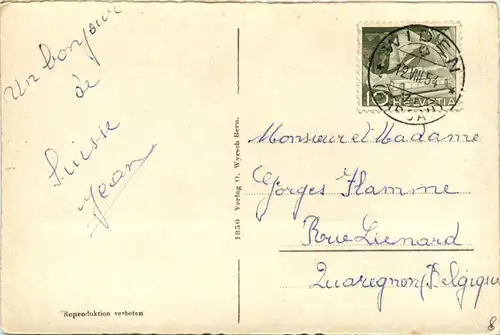 Un bonjour
de
Suisse
Jean
Reproduktion verboten
1850 Verlag O. Wyrsch Bern.
WIDEN
12.VIII.54
10 HELVETIA
Monsieur et Madame
Gorges Flamme
Rue Lienard
Quaregnon, Belgique
8